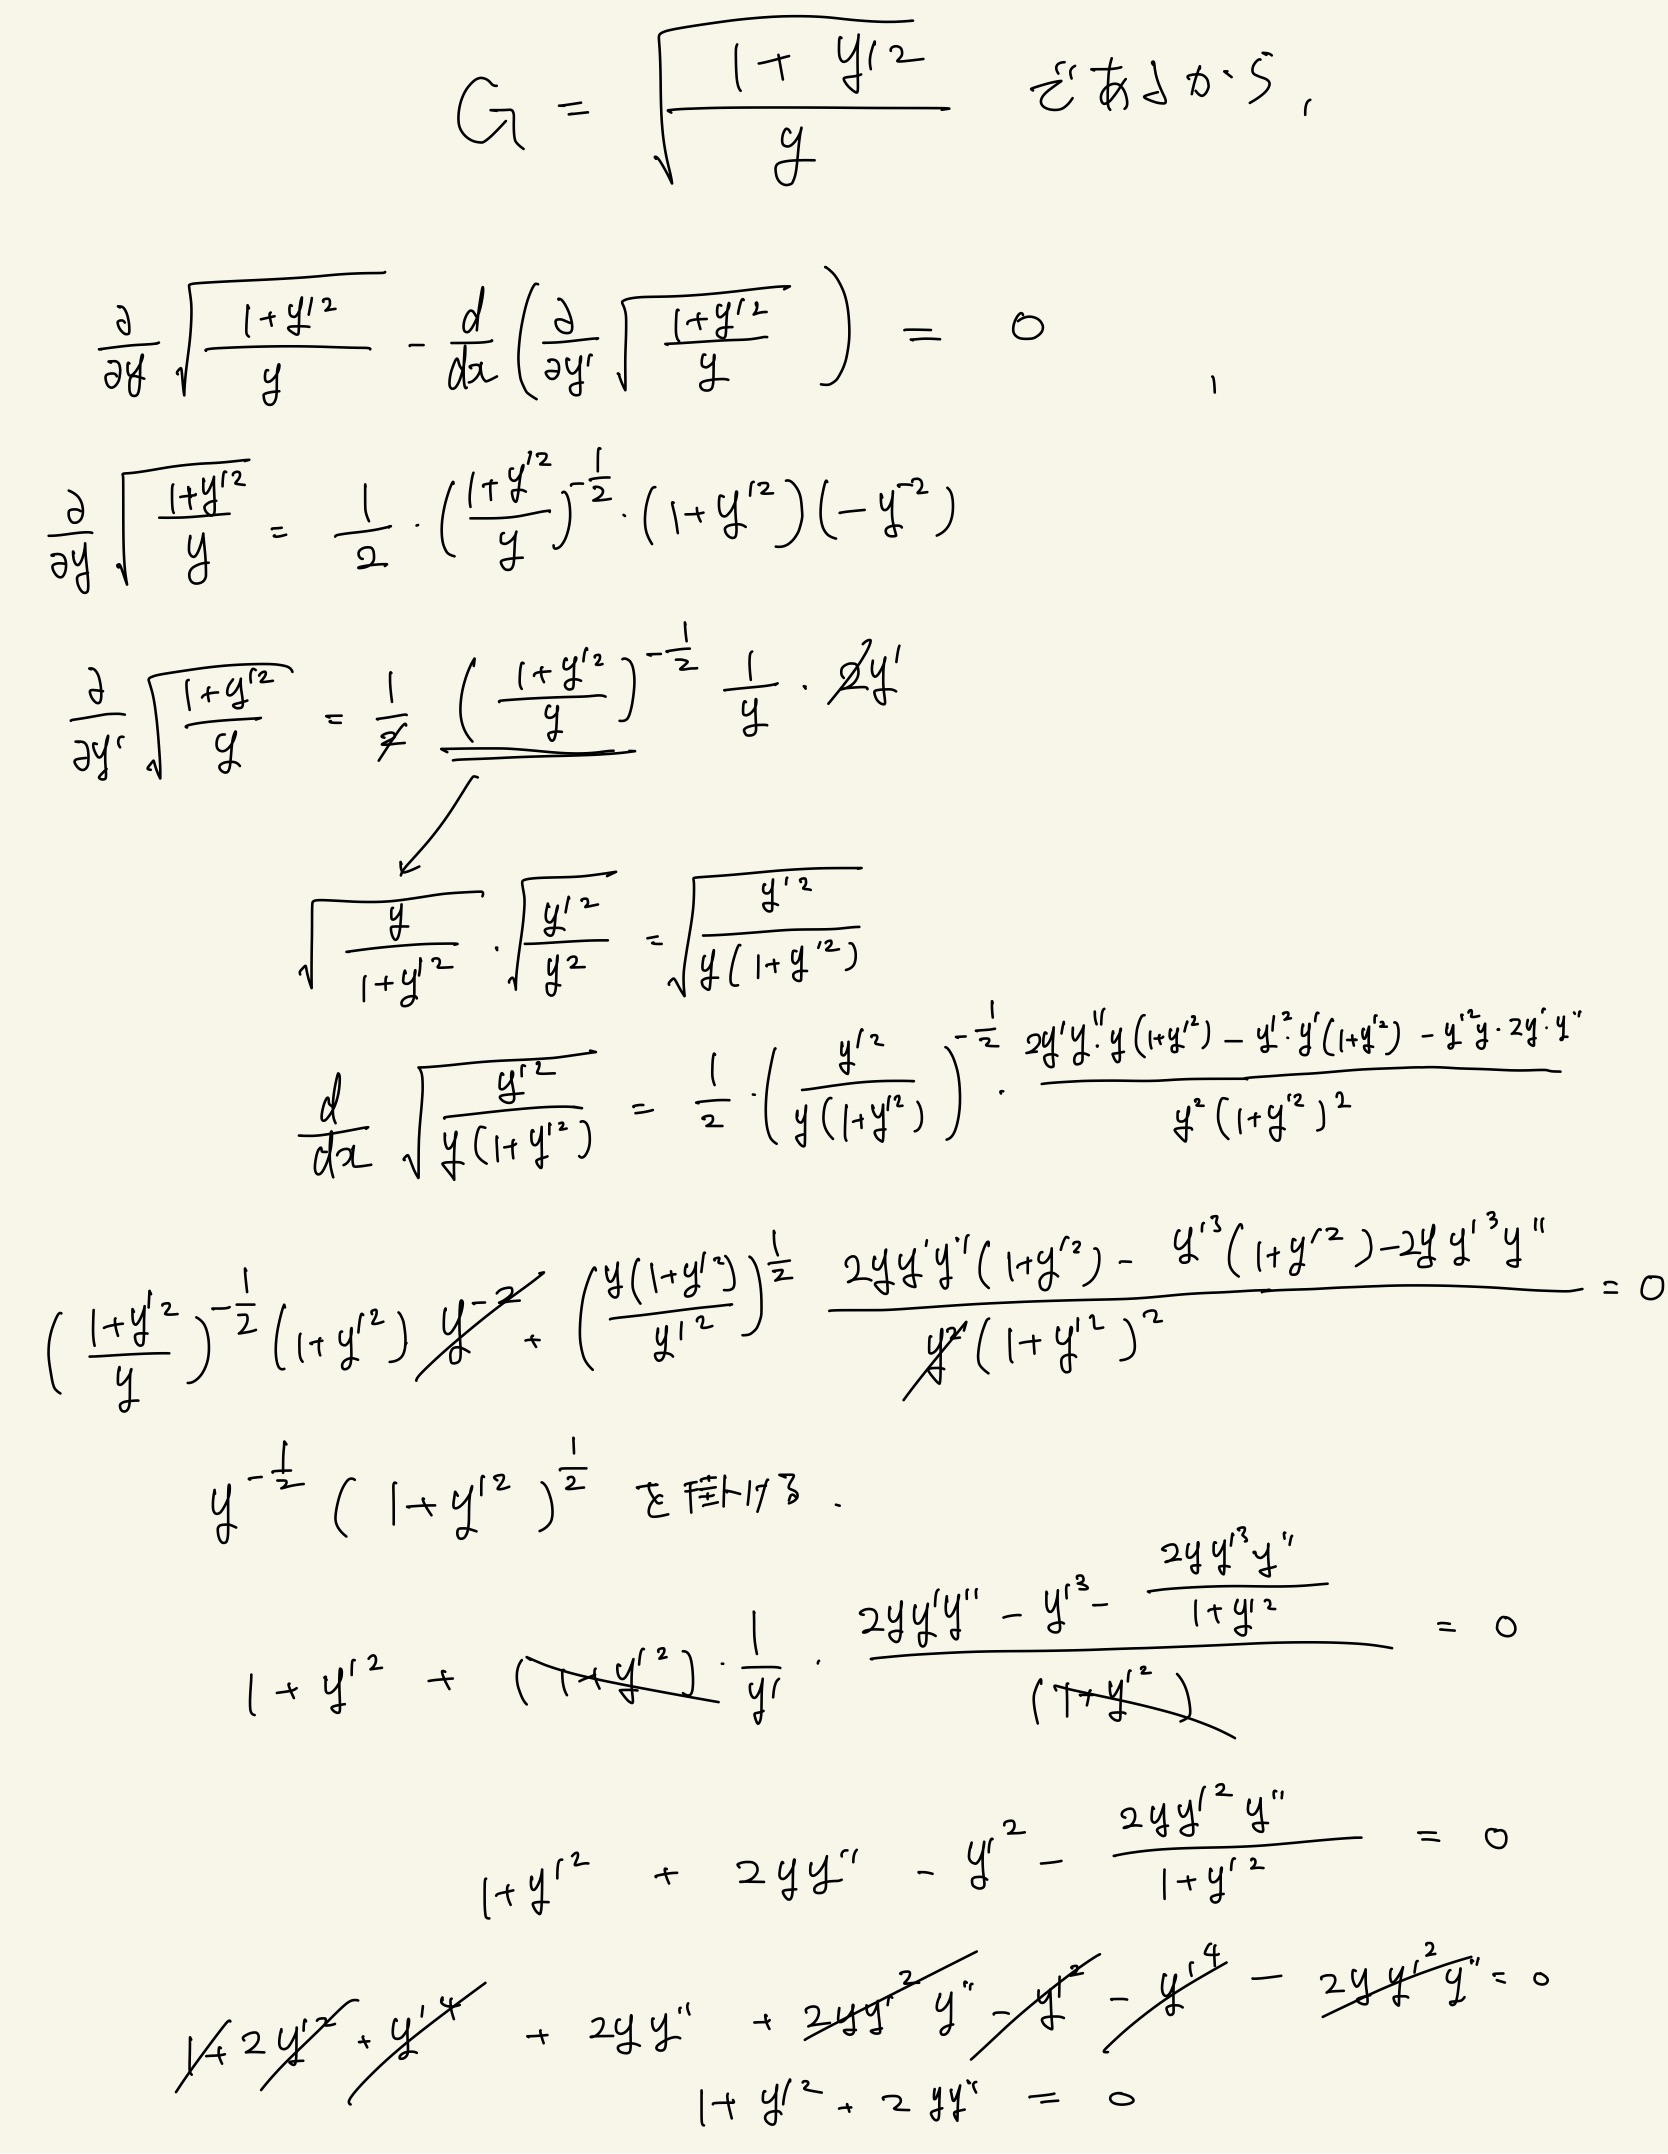 G = √((1+y'²)/y) であるから,
∂/∂y √((1+y'²)/y) - d/dx (∂/∂y' √((1+y'²)/y)) = 0 ,
∂/∂y √((1+y'²)/y) = 1/2 · ((1+y'²)/y)^(-1/2) · (1+y'²)(-y⁻²)
∂/∂y' √((1+y'²)/y) = 1/2 ((1+y'²)/y)^(-1/2) 1/y · 2y'
√(y/(1+y'²)) · √(y'²/y²) = √(y'²/(y(1+y'²)))
d/dx √(y'²/(y(1+y'²))) = 1/2 · (y'²/(y(1+y'²)))^(-1/2) · (2y'y''·y(1+y'²) - y'²·y'(1+y'²) - y'²y·2y'·y'')/(y²(1+y'²)²)
((1+y'²)/y)^(-1/2) (1+y'²) y⁻² + (y(1+y'²)/y'²)^(1/2) (2yy'y''(1+y'²) - y'³(1+y'²) - 2yy'³y'')/(y²(1+y'²)²) = 0
y^(-1/2) (1+y'²)^(1/2) を掛ける.
1+y'² + (1+y'²) · 1/y' · (2yy'y'' - y'³ - 2yy'³y''/(1+y'²))/(1+y'²) = 0
1+y'² + 2yy'' - y'² - 2yy'²y''/(1+y'²) = 0
1+2y'²+y'⁴ + 2yy'' + 2yy'²y'' - y'² - y'⁴ - 2yy'²y'' = 0
1+y'²+2yy'' = 0